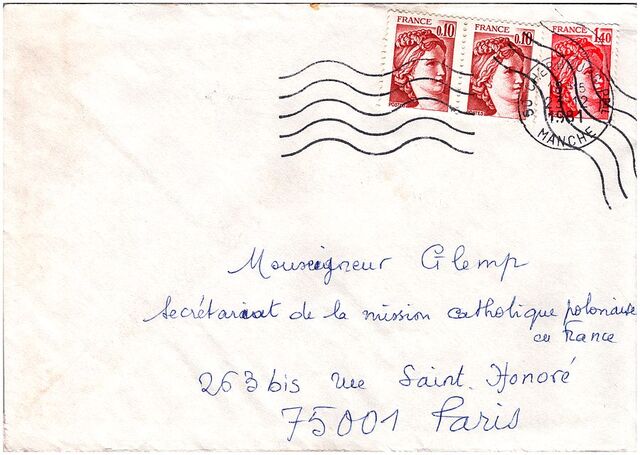 FRANCE 0,10
FRANCE 0,10
FRANCE 1,40
MANCHE
1981
Monseigneur Glemp
Secrétariat de la mission catholique polonaise
en France
263 bis rue Saint. Honoré
75001 Paris